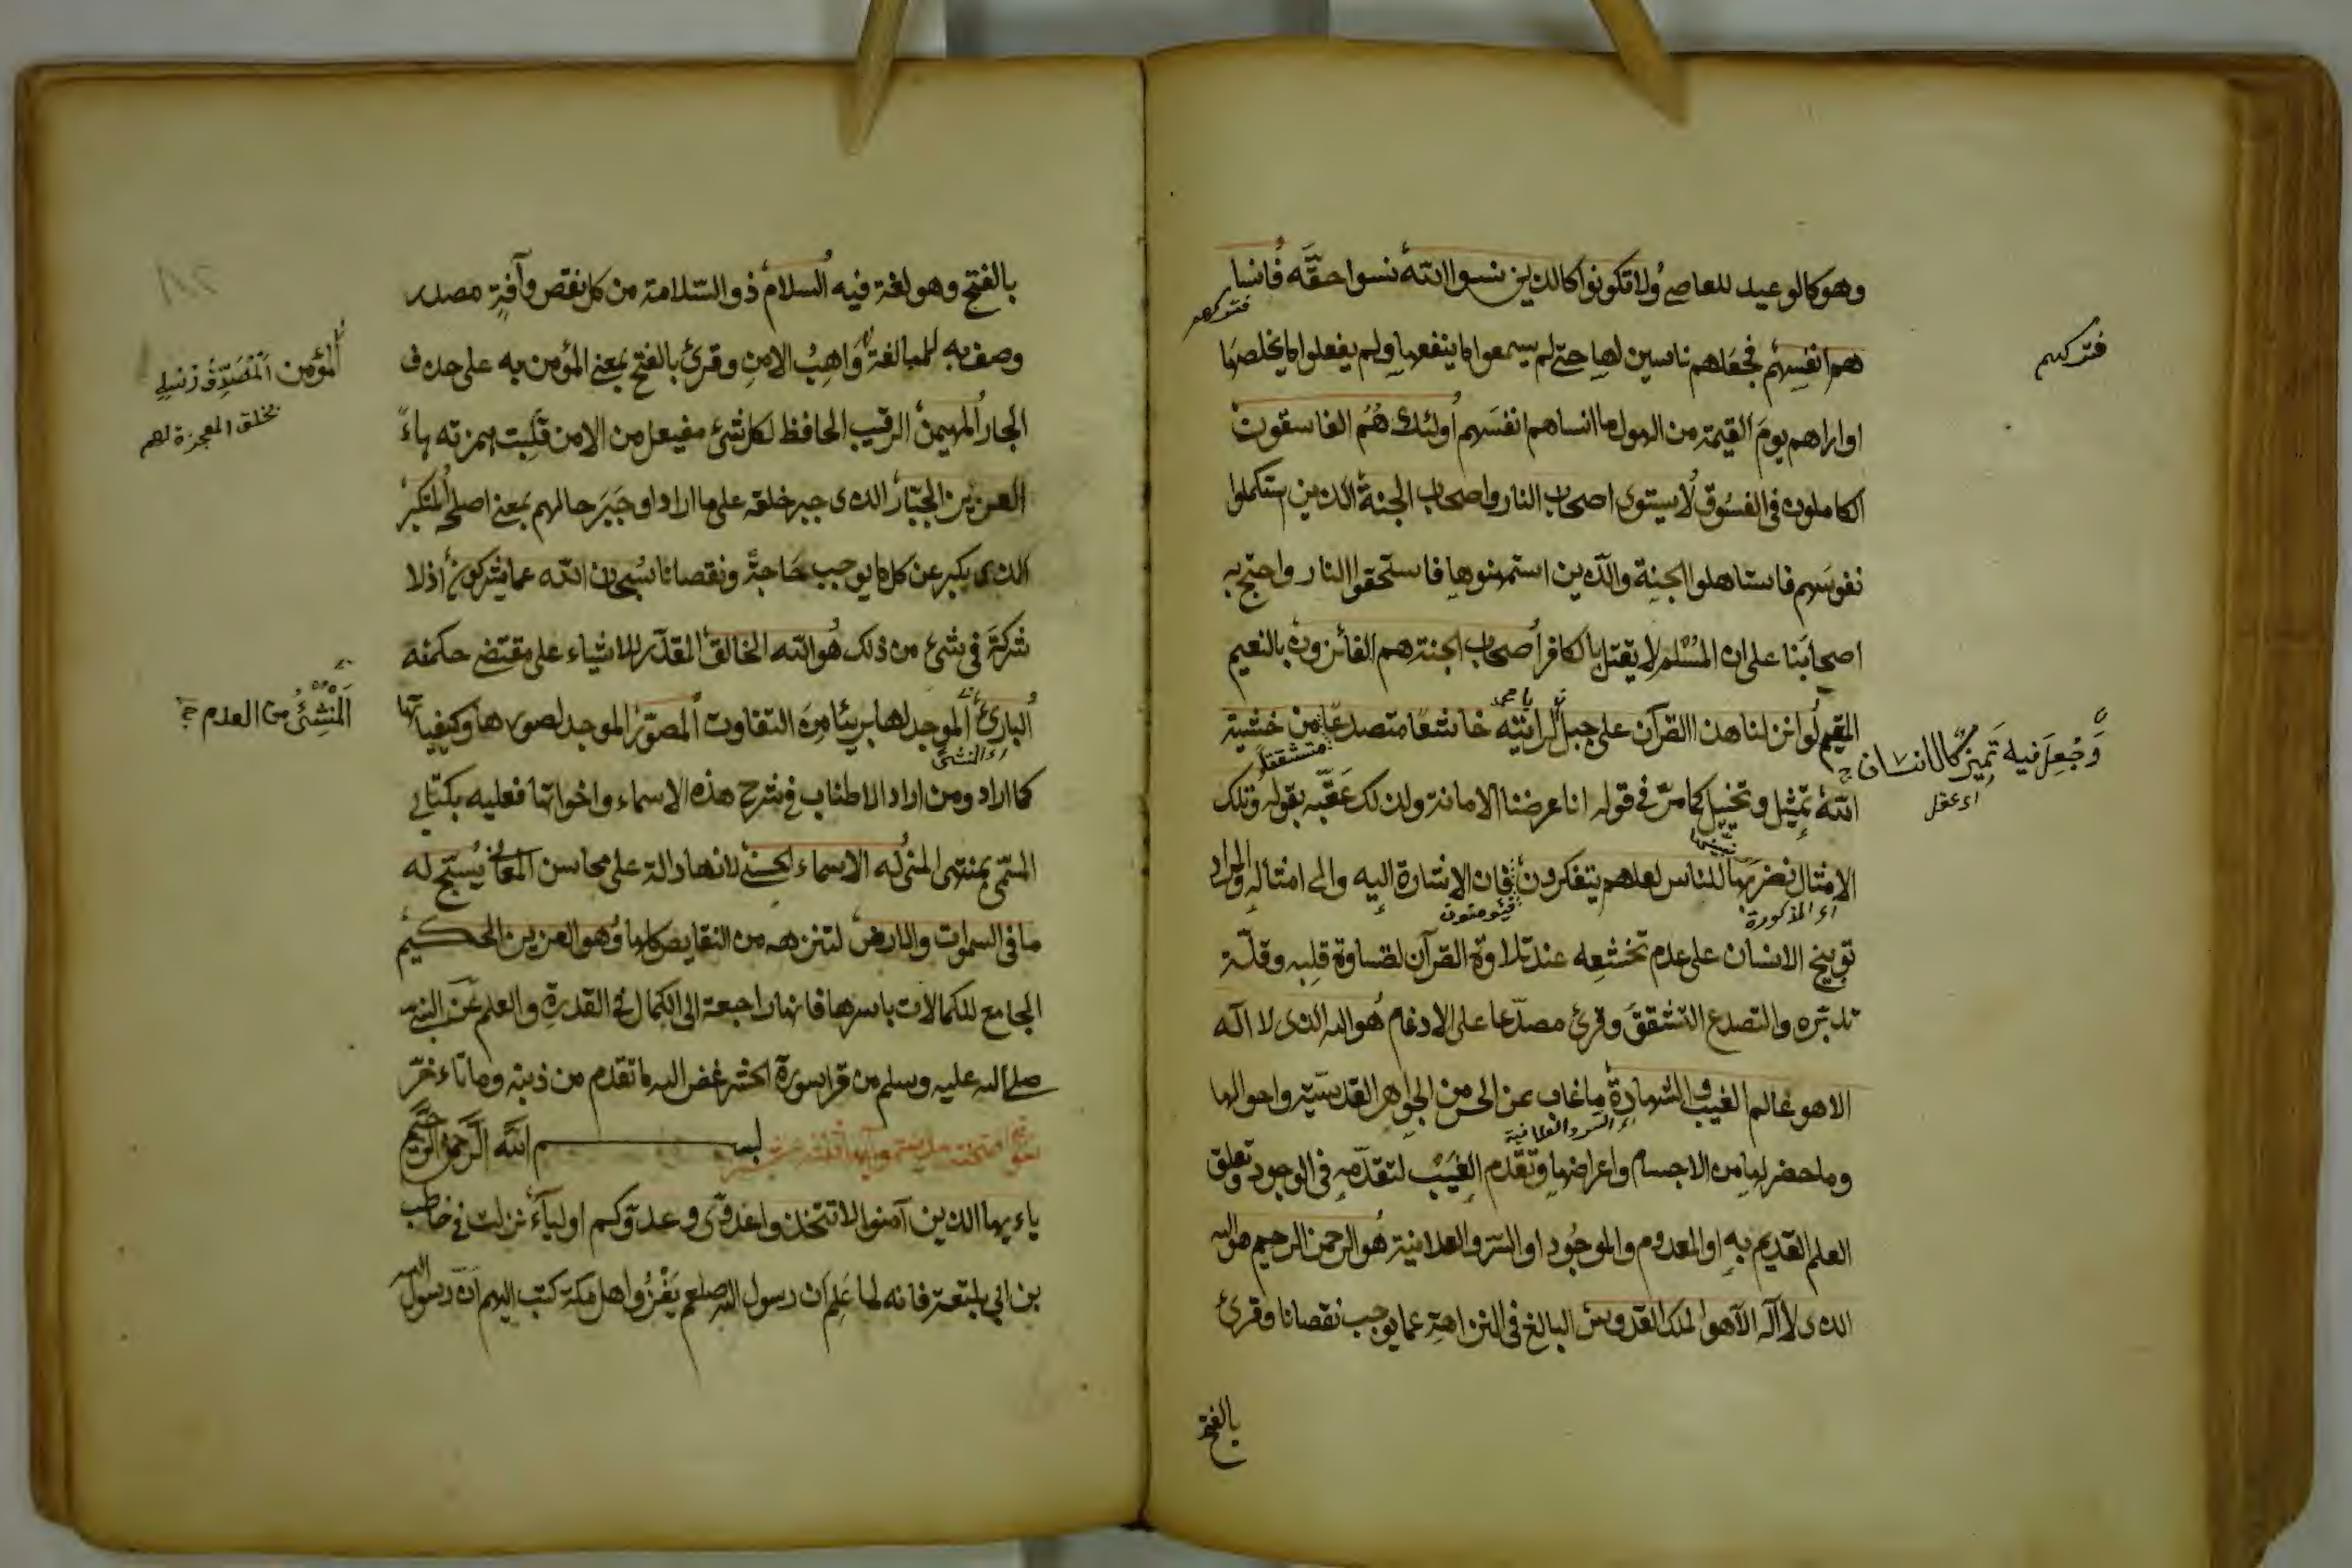 وهو كالوعيد للعاصي ولا تكونوا كالذين نسوا الله نسوا حقّه فانسا
فتركهم
هم انفسهم فجعلهم ناسين لها حتى لم يسمعوا ما ينفعها ولم يفعلوا ما يخلصها
فتركهم
او اراهم يوم القيمة من الهول ما انساهم انفسهم أولئك هُمُ الفاسقون
الكاملون في الفسُوق لا يستوى اصحاب النار واصحاب الجنة الذين استكملوا
نفوسَهم فاستاهلوا الجنة والّذين استمهنوها فاستحقوا النار واحتج به
اصحابنا على ان المسُلم لا يقتل بالكافر أصحاب الجنة هم الفائزون بالنعيم
المقيم لو انزلنا هذا القرآن على جبل لرايته خاشعًا متصدعًا من خشية
وَجُعِلَ فيه تَمِيزٌ كالانسان
اى عقل
متشققا
الله تمثيل وتخييل كما مرّ في قوله انا عرضنا الامانة ولذلك عَقّبه بقوله وتلك
الامثال نضربها للناس لعلهم يتفكرون فان الاشارة إليه والى امثاله والمراد
اى المذكورة
فيؤمنون
توبيخ الانسان على عدم تخشعه عند تلاوة القرآن لقساوة قلبه وقلّة
تدبّره والتصدع التشقق وقرئ مصدّعا على الادغام هُو الله الذى لا اله
الا هو عالم الغيب والشهادة ما غاب عن الحس من الجواهر القدسيّة واحوالها
السر والعلانية
وما حضر لها من الاجسام واعراضها وتقّدم الغَيْب لتقدّمه في الوجود وتعلق
العلم القديم به او المعدوم والموجُود او السّر والعلانية هُو الرحمن الرحيم هو الله
الذى لا آله الاّ هو الملك القدوس البالغ في النزاهة عما يوجب نقصانا وقرئ
بالفتح
بالفتح وهو لغة فيه السلام ذو السّلامة من كل نقص وآفةٍ مصدر
وصف به للمبالغة وَاهِبُ الامنِ وقرئ بالفتح بمعنى المؤمن به على حذف
المؤمن المُصَدِّقُ رُسُله
بخلق المعجزة لهم
الجار المهيمن الرقيب الحافظ لكل شئ مفيعل من الامن قلبت همزته هاءً
العزيز الجبّار الذى جبر خلقه على ما اراد او جَبَر حالهم بمعنى اصلحه المتكبرُ
الذى يكبر عن كل ما يوجب حَاجةً ونقصانا سُبحان الله عما يشركون اذ لا
شركَة في شئ من ذلك هُو الله الخالق المقدّر للاشياء على مقتضى حكمته
البارئ الموجد لها بريئا من التفاوت المصوّر الموجد لصورها وكيفياتها
المُنْشِئُ من العدم
كما اراد ومن اراد الاطناب في شرح هذه الاسماء واخواتها فعليه بكتابى
المسّمى بمنتهى المنى له الاسماء الحسنى لانها دالة على محاسن المعانى يُسَبّح له
ما في السموات والارض لتنزهه من النقايص كلها وهو العزيز الحكيم
الجامع للكمالات باسرها فانها راجعة الى الكمال في القدرة والعلم عن النبي
صلى الله عليه وسلم من قرا سورة الحشر غفر الله ما تقدم من ذنبه وما تاءخّر
بسم الله الرَّحمن الرَّحيم
ياءيها الذين آمنوا لا تتخذوا عدوّى وعدوّكم اولياءَ نزلت في حاطب
بن ابي بلتعة فانه لما عَلِم ان رسول الله صلعم يَغْزُوا اهل مكة كتب اليهم انّ رسول الله